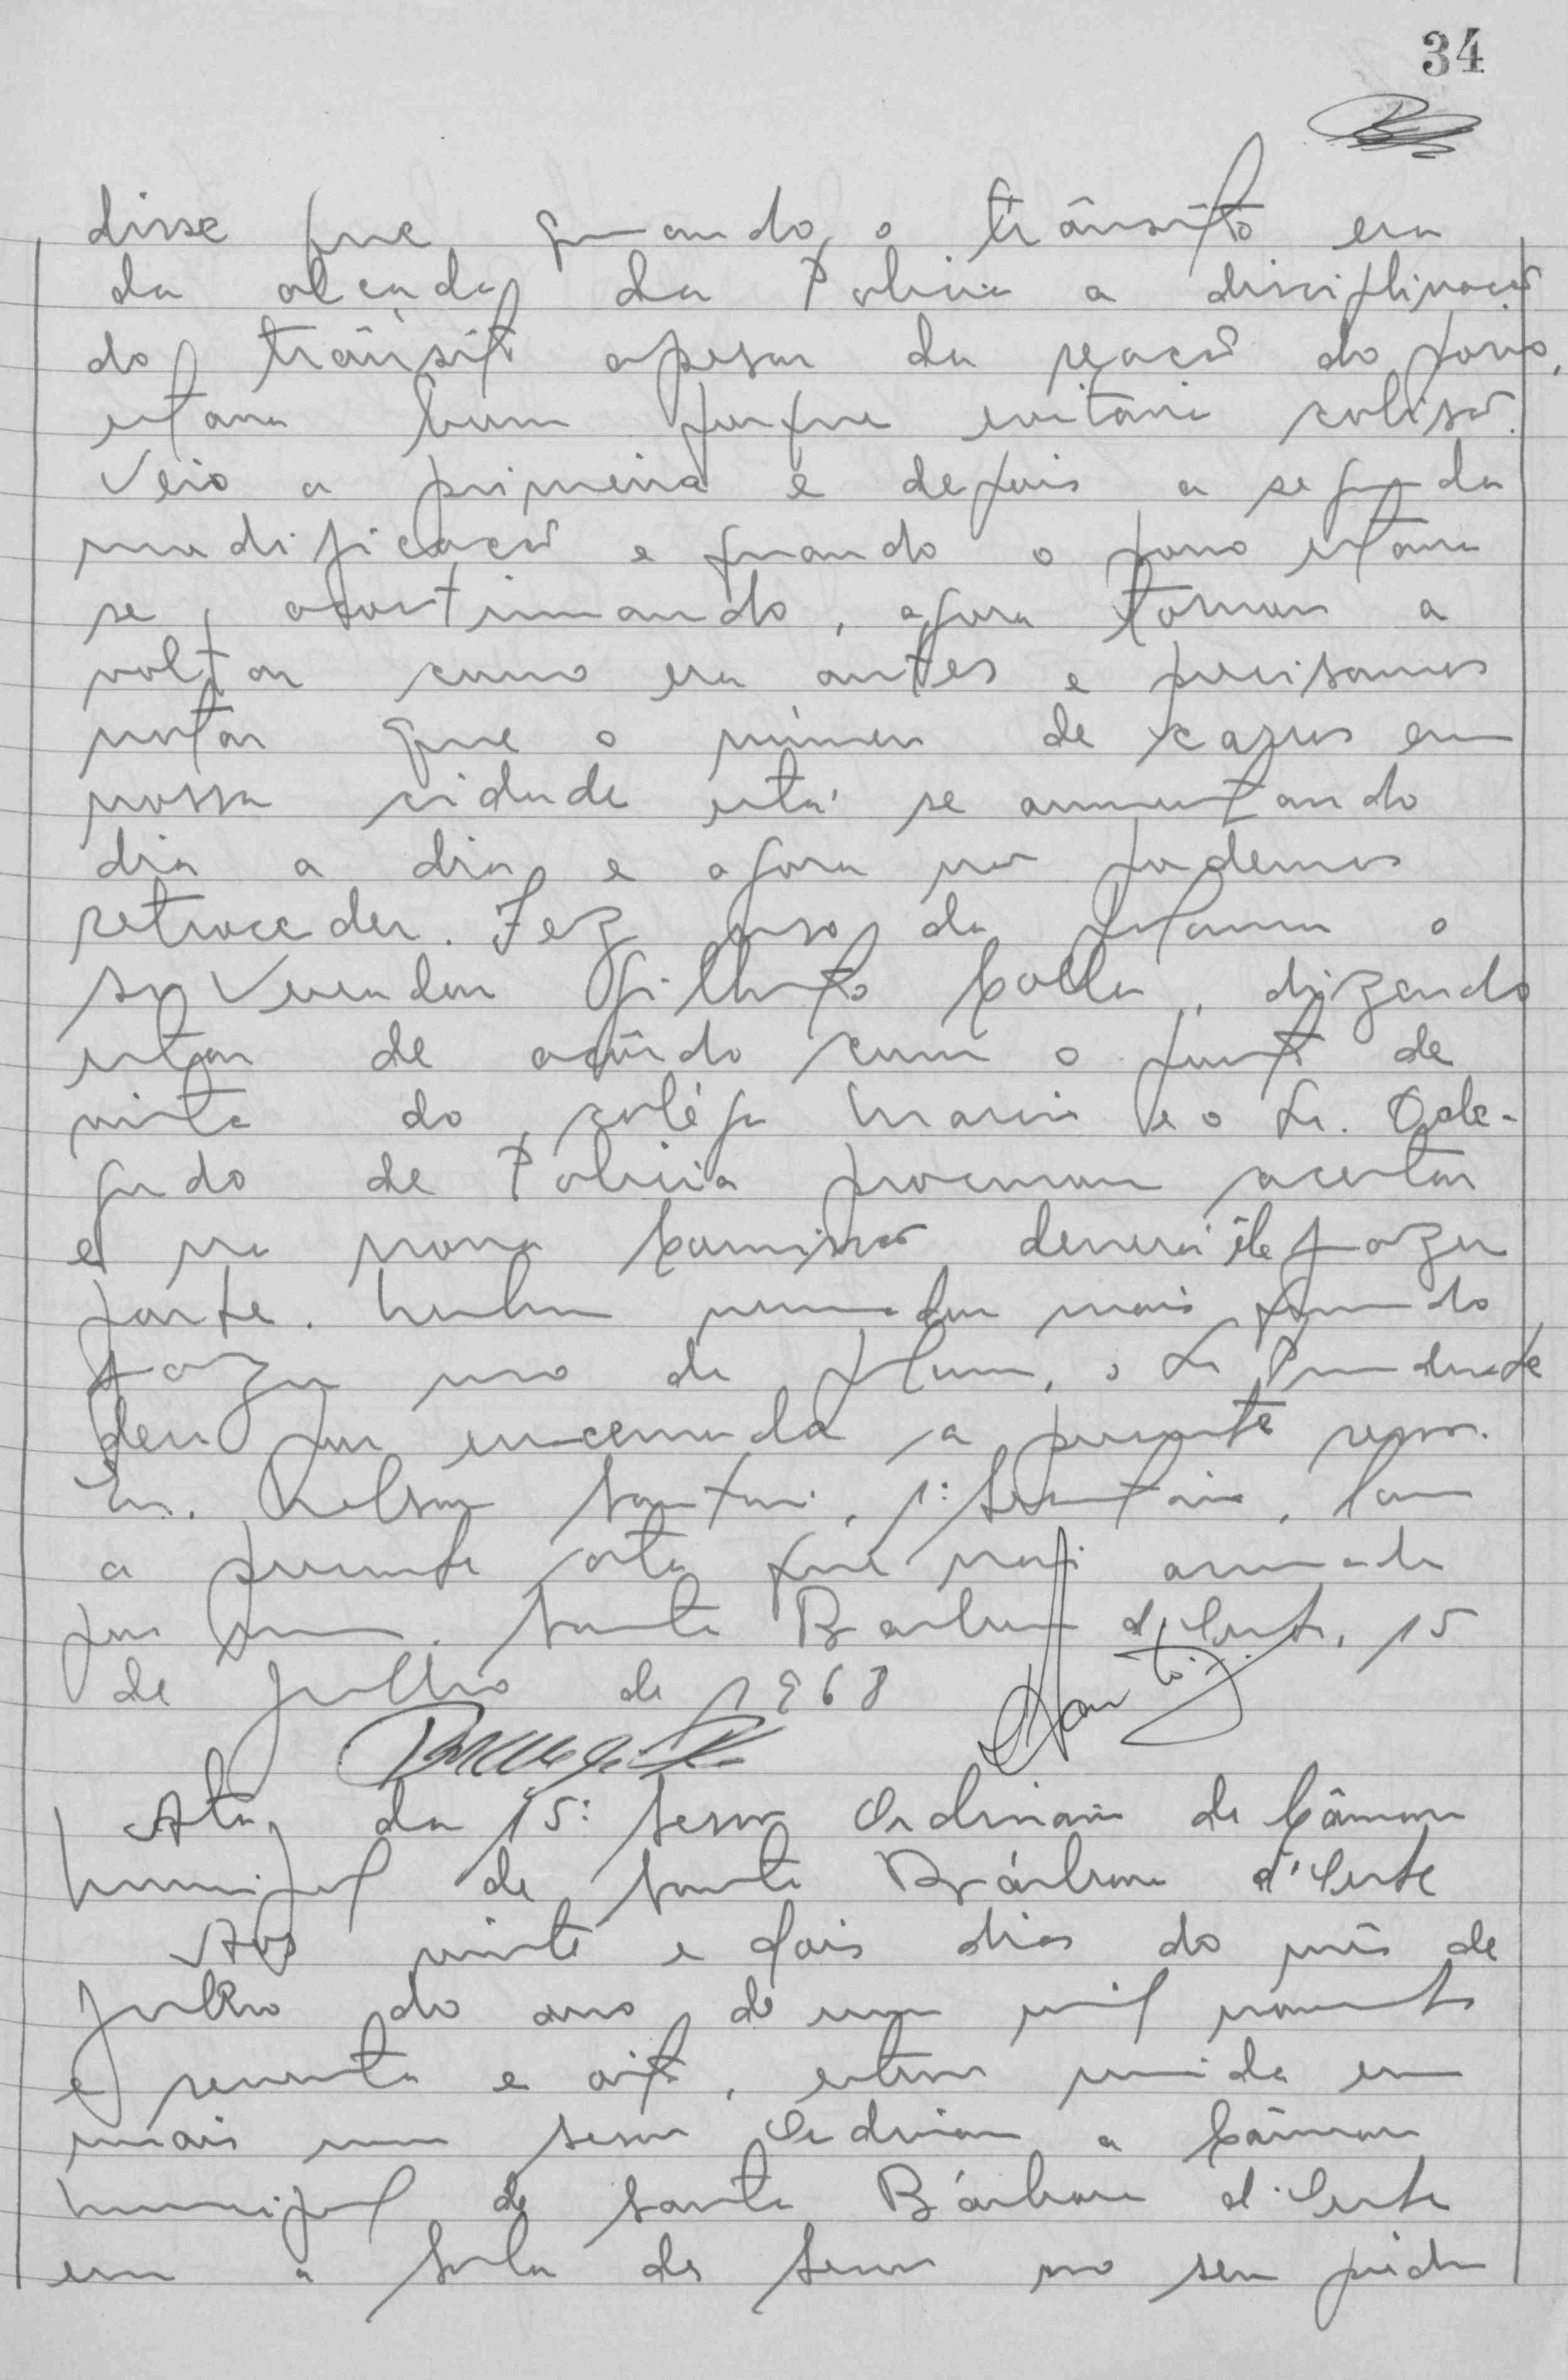 34
disse que quando o trânsito era
da alçada da Policia a disciplinação
do trânsito apesar da reação do povo,
estava bom porque evitava colisão.
Veio a primeira e depois a segunda
modificação e quando o povo estava
se acostumando, agora tornam a
voltar como era antes e precisamos
notar que o número de carros em
nossa cidade está se aumentando
dia a dia e agora não podemos
retroceder. Fez uso da palavra o
sr Vereador Gilberto Colla, dizendo
estar de acôrdo com o ponto de
vista do coléga Mario e o Sr. Dele-
gado de Policia procurou acertar
e na nova Comissão deverá êle fazer
parte. Nenhum vereador mais querendo
fazer uso da palavra, o Sr Presidente
deu por encerrada a presente sessão.
Eu, Nelson Santari, 1º Secretário, lavrei
a presente ata que vai assinada
por mim. Santa Barbara d'Oeste, 15
de julho de 1968
Ata da 15ª Sessão Ordinaria da Câmara
Municipal de Santa Bárbara d'Oeste
Aos vinte e dois dias do mês de
julho do ano de um mil novecentos
e sessenta e oito, esteve reunida em
mais uma sessão Ordinaria a Câmara
Municipal de Santa Bárbara d'Oeste
em a Sala das Sessões no seu prédio